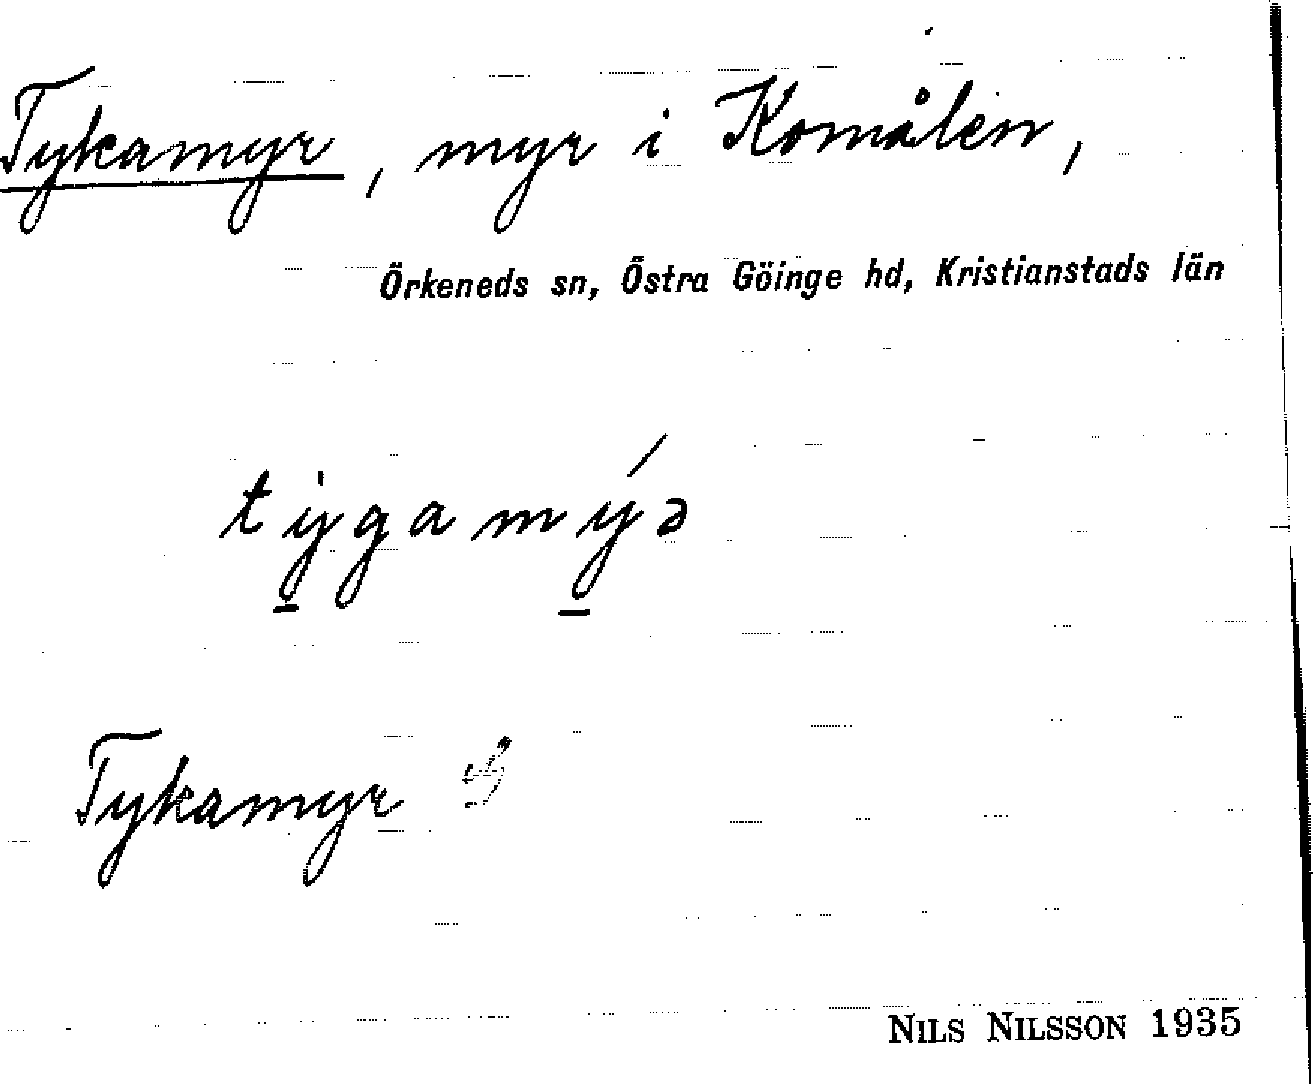 Tykamyr, myr i Komålen,
Örkeneds sn, Östra Göinge hd, Kristianstads län
tỳgamýə
Tykamyr
NILS NILSSON 1935